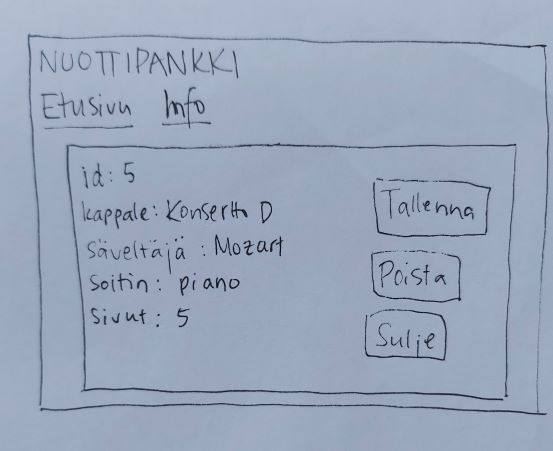 NUOTTIPANKKI
Etusivu Info
id: 5
kappale: Konsertto D
säveltäjä : Mozart
Soitin : piano
Sivut : 5
Tallenna
Poista
Sulje